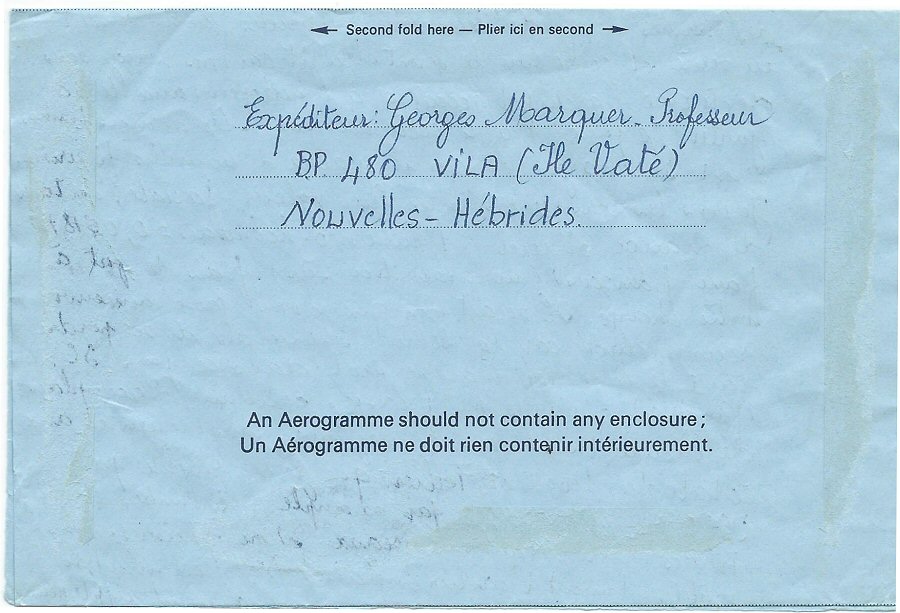 Second fold here — Plier ici en second
Expéditeur: Georges Marquer - Professeur
BP 480 VILA (Ile Vaté)
Nouvelles-Hébrides.
An Aerogramme should not contain any enclosure;
Un Aérogramme ne doit rien contenir intérieurement.